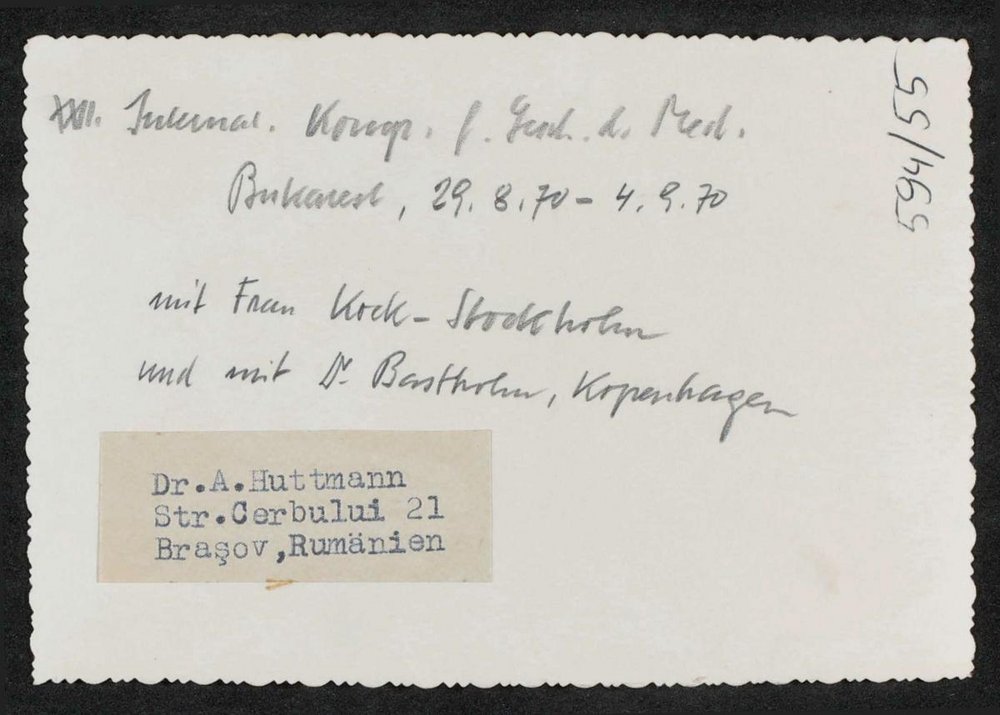 XXII. Internat. Kongr. f. Gesch. d. Med.
Bukarest, 29.8.70 - 4.9.70
mit Frau Kock - Stockholm
und mit Dr. Bastholm, Kopenhagen
Dr.A.Huttmann
Str.Cerbului 21
Braşov,Rumänien
594/55